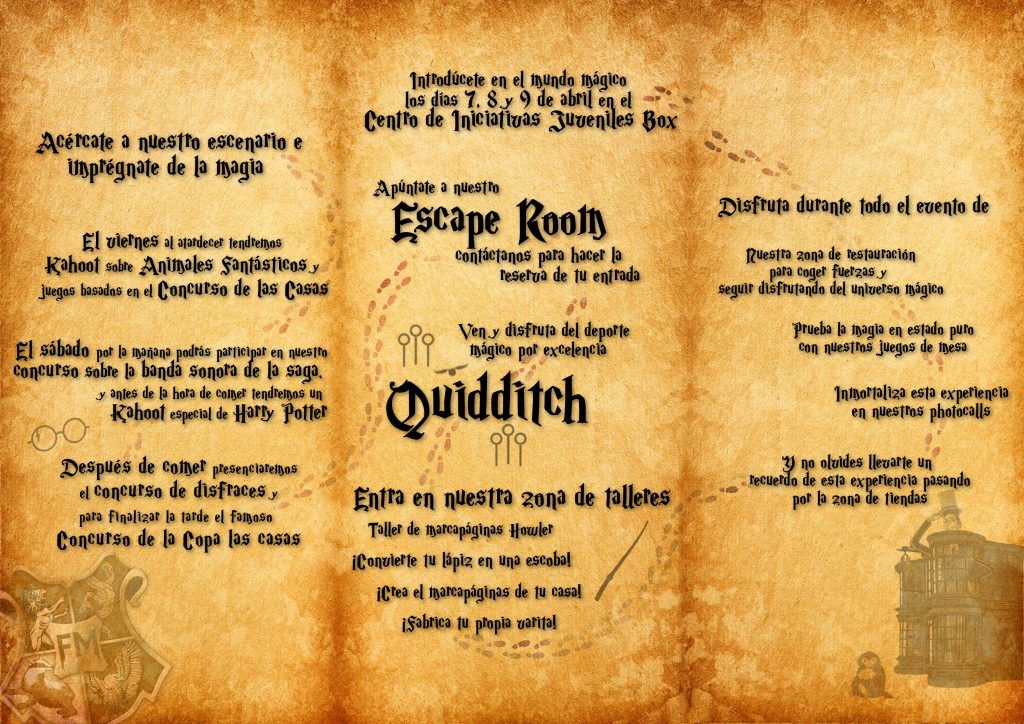 Acércate a nuestro escenario e
imprégnate de la magia
El viernes al atardecer tendremos
Kahoot sobre Animales Fantásticos y
juegos basados en el Concurso de las Casas
El sábado por la mañana podrás participar en nuestro
concurso sobre la banda sonora de la saga,
y antes de la hora de comer tendremos un
Kahoot especial de Harry Potter
Después de comer presenciaremos
el concurso de disfraces y
para finalizar la tarde el famoso
Concurso de la Copa las casas
FM
Introdúcete en el mundo mágico
los días 7, 8 y 9 de abril en el
Centro de Iniciativas Juveniles Box
Apúntate a nuestro
Escape Room
contáctanos para hacer la
reserva de tu entrada
Ven y disfruta del deporte
mágico por excelencia
Quidditch
Entra en nuestra zona de talleres
Taller de marcapáginas Howler
¡Convierte tu lápiz en una escoba!
¡Crea el marcapáginas de tu casa!
¡Fabrica tu propia varita!
Disfruta durante todo el evento de
Nuestra zona de restauración
para coger fuerzas y
seguir disfrutando del universo mágico
Prueba la magia en estado puro
con nuestros juegos de mesa
Inmortaliza esta experiencia
en nuestros photocalls
Y no olvides llevarte un
recuerdo de esta experiencia pasando
por la zona de tiendas